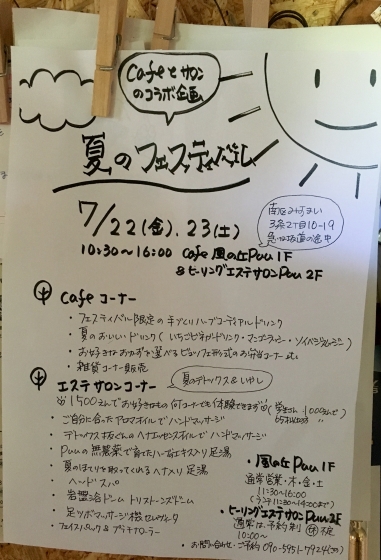 Cafeとサロン
のコラボ企画
夏のフェスティバル
7/22(金).23(土)
10:30~16:00 Cafe 風の丘Puu 1F
&ヒーリングエステサロンPuu 2F
南区みすまい
3条2丁目10-19
急な坂道の途中
Cafe コーナー
・フェスティバル限定の手づくりハーブコーディアルドリンク
・夏のおいしいドリンク(いちごビネガードリンク・マンゴラッシー・ソイベジスムージー)
・お好きなおかずを選べるビュッフェ形式のお弁当コーナー etc
・雑貨コーナー販売
エステサロンコーナー
夏のデトックス&いやし
1500えんでお好きなもの何コーナーでも体験できます
(学生さん 1000えんで
65才以上
・ご自分に合ったアロマオイルでハンドマッサージ
・デトックス ヘナエッセンスオイルでハンドマッサージ
・Puuの無農薬で育てたハーブエキス入り足湯
・夏のほてりを取ってくれるヘナ入り足湯
・ヘッドスパ
・岩盤浴ドーム トルマリンドーム
・足ツボマッサージ機
・フェイスパック&プラチナローラー
・風の丘 Puu 1F
通常営業・木・金・土
11:30~16:00
(ランチ11:30~14:00まで)
・ヒーリングエステサロンPuu 2F
通常は、予約制 不定
10:00~
・お問い合わせ・ご予約 090-5951-7924